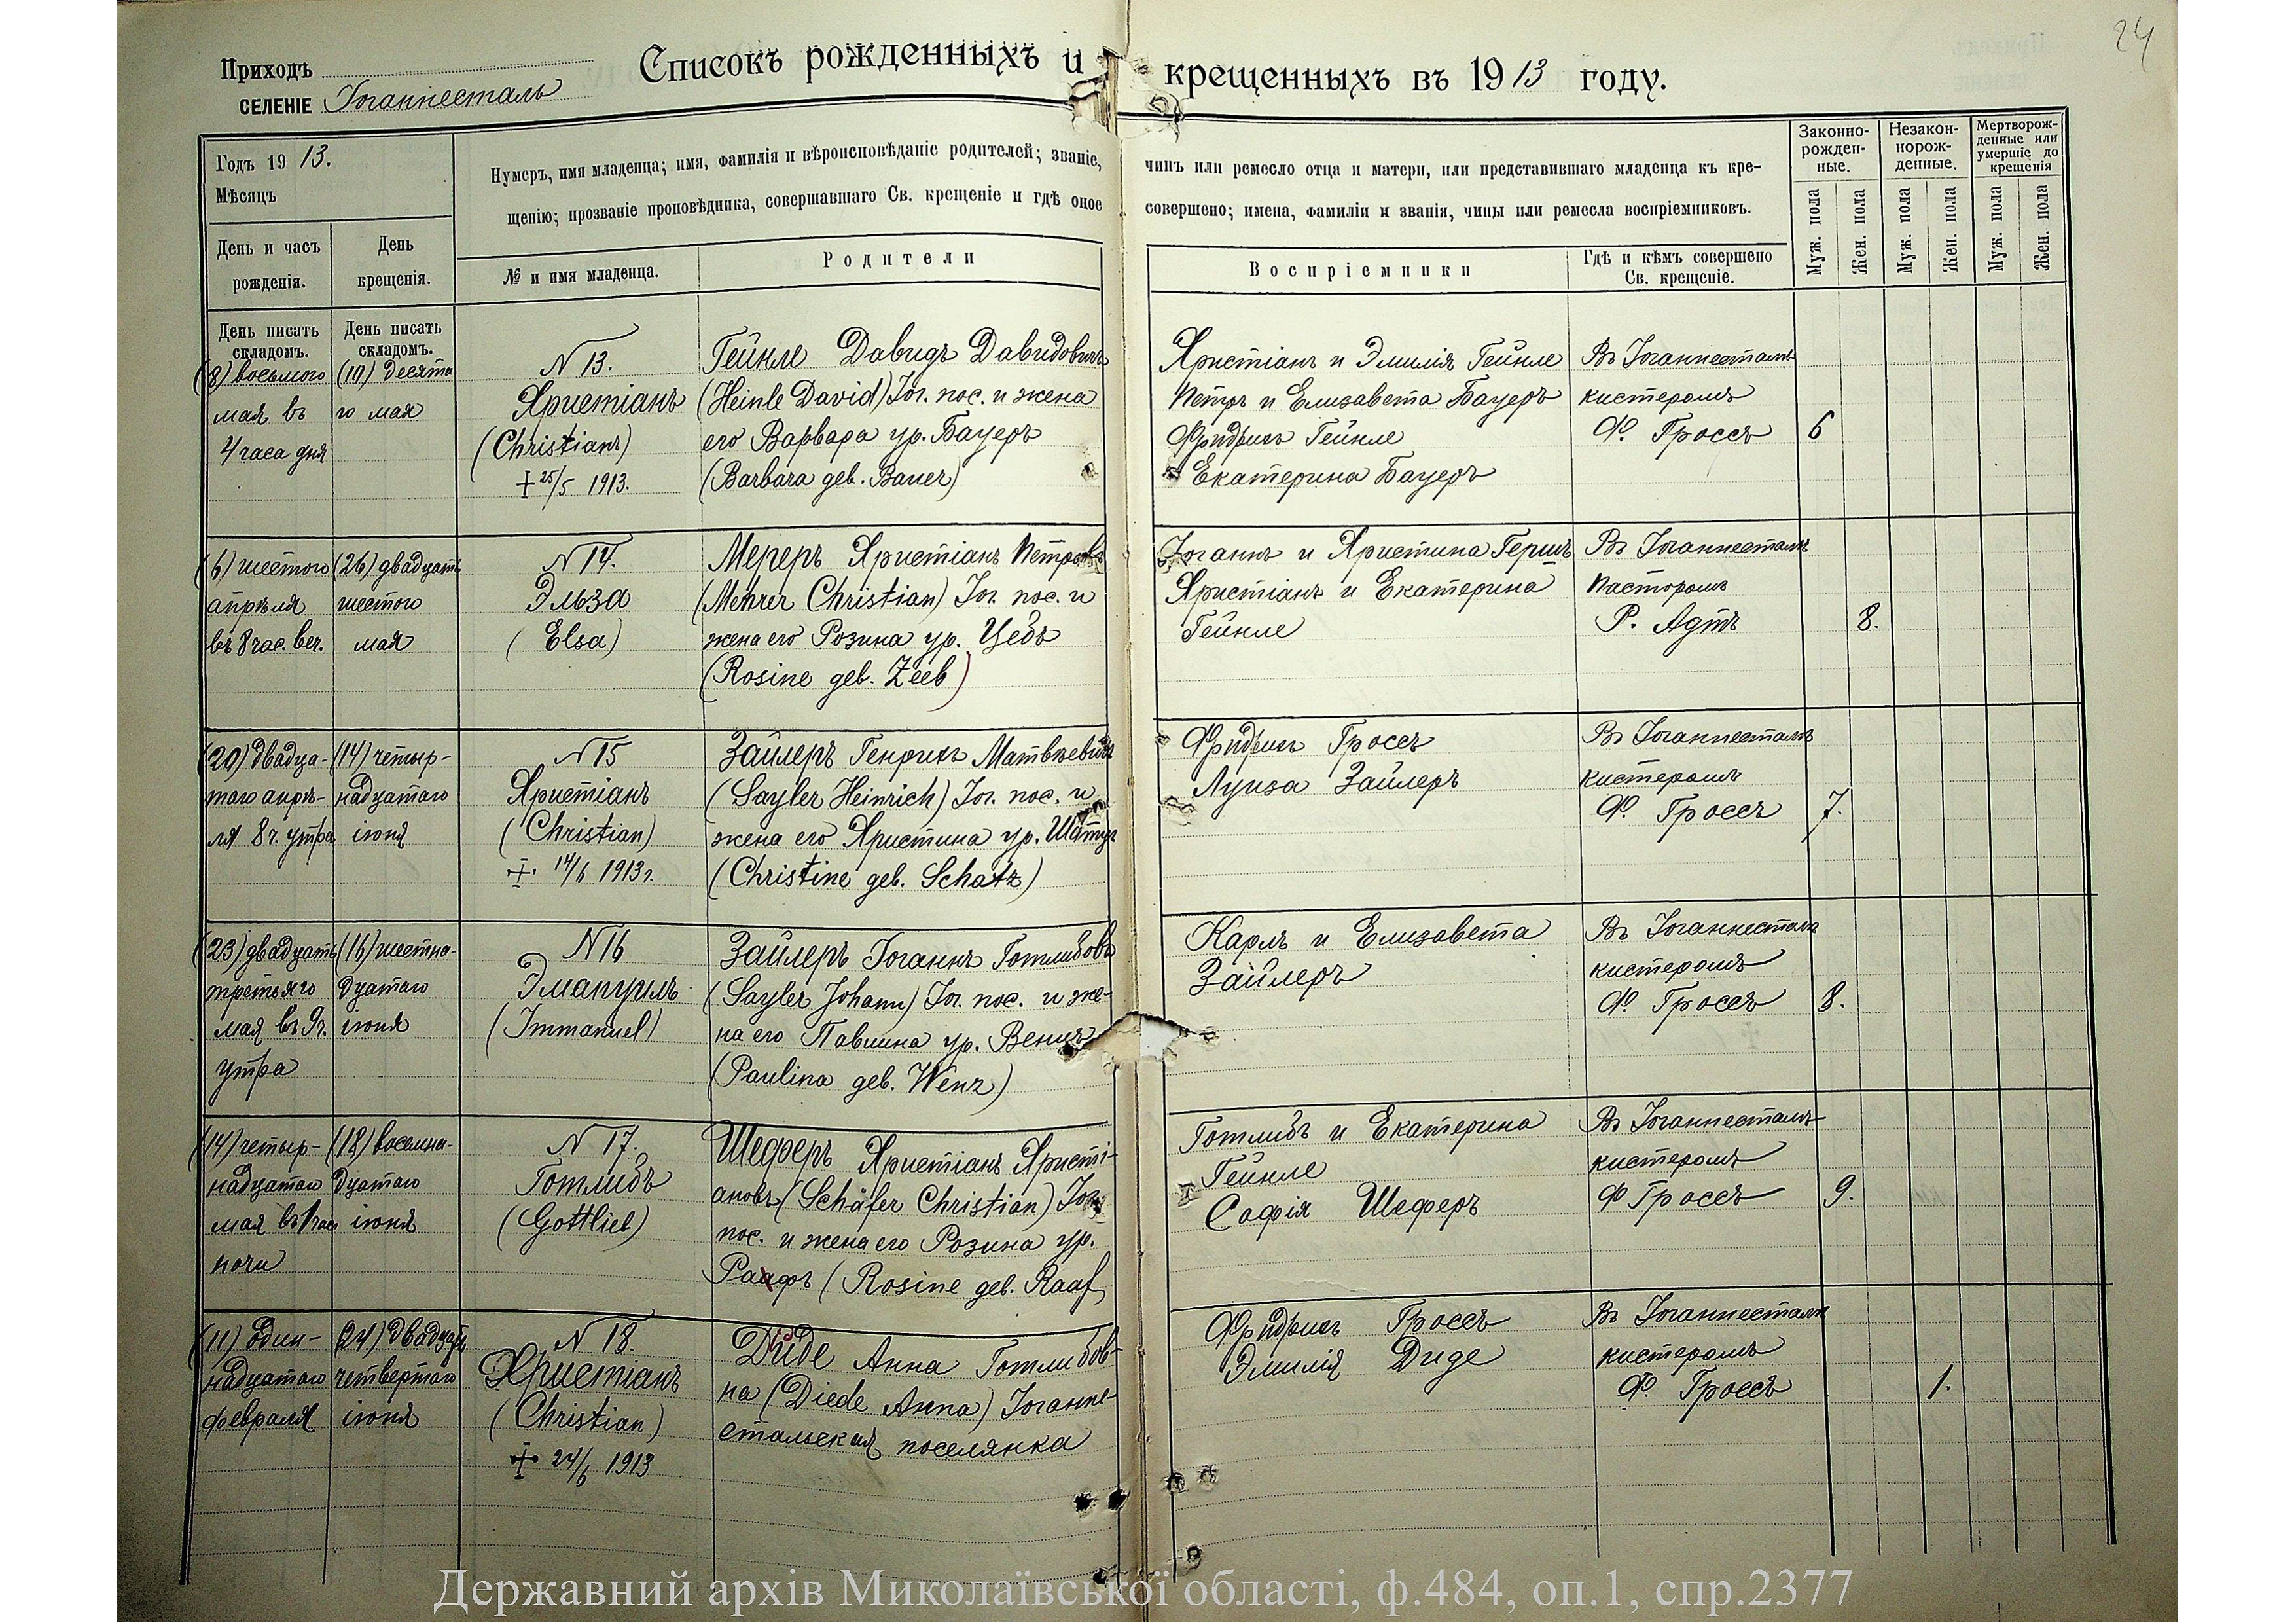 24
Приходъ
СЕЛЕНІЕ Іоганнесталь
Списокъ рожденныхъ и крещенныхъ въ 1913 году.
Годъ 1913.
Мѣсяцъ
Нумеръ, имя младенца; имя, фамилія и вѣроисповѣданіе родителей; званіе, чинъ или ремесло отца и матери, или представившаго младенца къ кре-
щенію; прозваніе проповѣдника, совершавшаго Св. крещеніе и гдѣ оное совершено; имена, фамиліи и званія, чины или ремесла воспріемниковъ.
Законно-
рожден-
ные.
Незакон-
норож-
денные.
Мертворож-
денные или
умершіе до
крещенія
Муж. пола
Жен. пола
Муж. пола
Жен. пола
Муж. пола
Жен. пола
День и часъ
рожденія.
День
крещенія.
№ и имя младенца.
Родители
Воспріемники
Гдѣ и кѣмъ совершено
Св. крещеніе.
День писать
складомъ.
День писать
складомъ.
(8) восьмого
мая въ
4 часа дня
(10) десята
го мая
N 13.
Христіанъ
(Christian)
+ 25/5 1913.
Гейнле Давидъ Давидовичъ
(Heinle David) Іог. пос. и жена
его Варвара ур. Бауеръ
(Barbara geb. Bauer)
Христіанъ и Эмилія Гейнле
Петръ и Елизавета Бауеръ
Фридрихъ Гейнле
Екатерина Бауеръ
Въ Іоганнесталѣ
кистеромъ
Ф. Гроссъ
6
(6) шестого
апрѣля
въ 8 час. веч.
(26) двадцать
шестого
мая
N 14.
Эльза
(Elsa)
Мереръ Христіанъ Петровъ
(Mehrer Christian) Іог. пос. и
жена его Розина ур. Цебъ
(Rosine geb. Zeeb)
Іоганнъ и Христина Гершъ
Христіанъ и Екатерина
Гейнле
Въ Іоганнесталѣ
пасторомъ
Р. Адтъ
8.
(20) двадца-
таго апрѣ-
ля 8 ч. утра
(14) четыр-
надцатаго
іюня
N 15
Христіанъ
(Christian)
+ 14/6 1913 г.
Зайлеръ Генрихъ Матвѣевичъ
(Sayler Heinrich) Іог. пос. и
жена его Христина ур. Шатцъ
(Christine geb. Schatz)
Фридрихъ Гроссъ
Луиза Зайлеръ
Въ Іоганнесталѣ
кистеромъ
Ф. Гроссъ
7.
(23) двадцать
третьяго
мая въ 9 ч.
утра
(16) шестна-
дцатаго
іюня
N 16
Эмануилъ
(Immanuel)
Зайлеръ Іоганнъ Готлибовъ
(Sayler Johann) Іог. пос. и же-
на его Павлина ур. Венцъ
(Paulina geb. Wenz)
Карлъ и Елизавета
Зайлеръ
Въ Іоганнесталѣ
кистеромъ
Ф. Гроссъ
8.
(14) четыр-
надцатаго
мая въ 1 час
ночи
(18) восемна-
дцатаго
іюня
N 17.
Готлибъ
(Gottlieb)
Шеферъ Христіанъ Христі-
ановъ (Schäfer Christian) Іог.
пос. и жена его Розина ур.
Раафъ (Rosine geb. Raaf)
Готлибъ и Екатерина
Гейнле
Софія Шеферъ
Въ Іоганнесталѣ
кистеромъ
Ф Гроссъ
9.
(11) один-
надцатаго
февраля
(24) двадцать
четвертаго
іюня
N 18.
Христіанъ
(Christian)
+ 24/6 1913
Диде Анна Готлибов-
на (Diede Anna) Іоганне-
стальская поселянка
Фридрихъ Гроссъ
Эмилія Диде
Въ Іоганнесталѣ
кистеромъ
Ф. Гроссъ
1.
Державний архів Миколаївської області, ф.484, оп.1, спр.2377